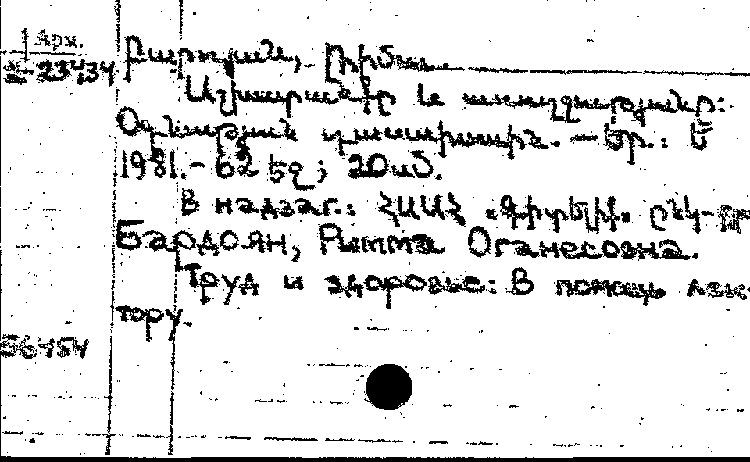 Арх.
23434
Բարդյան, Ռիմա
Աշխատանքը և առողջությունը:
Օգնություն դասախոսին. — Եր.: Ե
1981.- 62 էջ; 20սմ.
В надзаг.: ՀՍՍՀ «Գիտելիք» ընկ-
Бардоян, Римма Оганесовна.
Труд и здоровье: В помощь лек-
тору.
56454